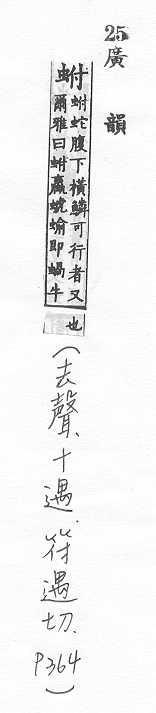 25
廣韻
蚹
蚹蛇腹下橫鱗可行者又
爾雅曰蚹蠃螔蝓即蝸牛
也
(去聲、十遇、符遇切、P364)